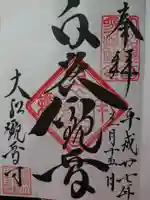 奉拝
平成廿七年
月十五日
白衣観音
大船観音寺